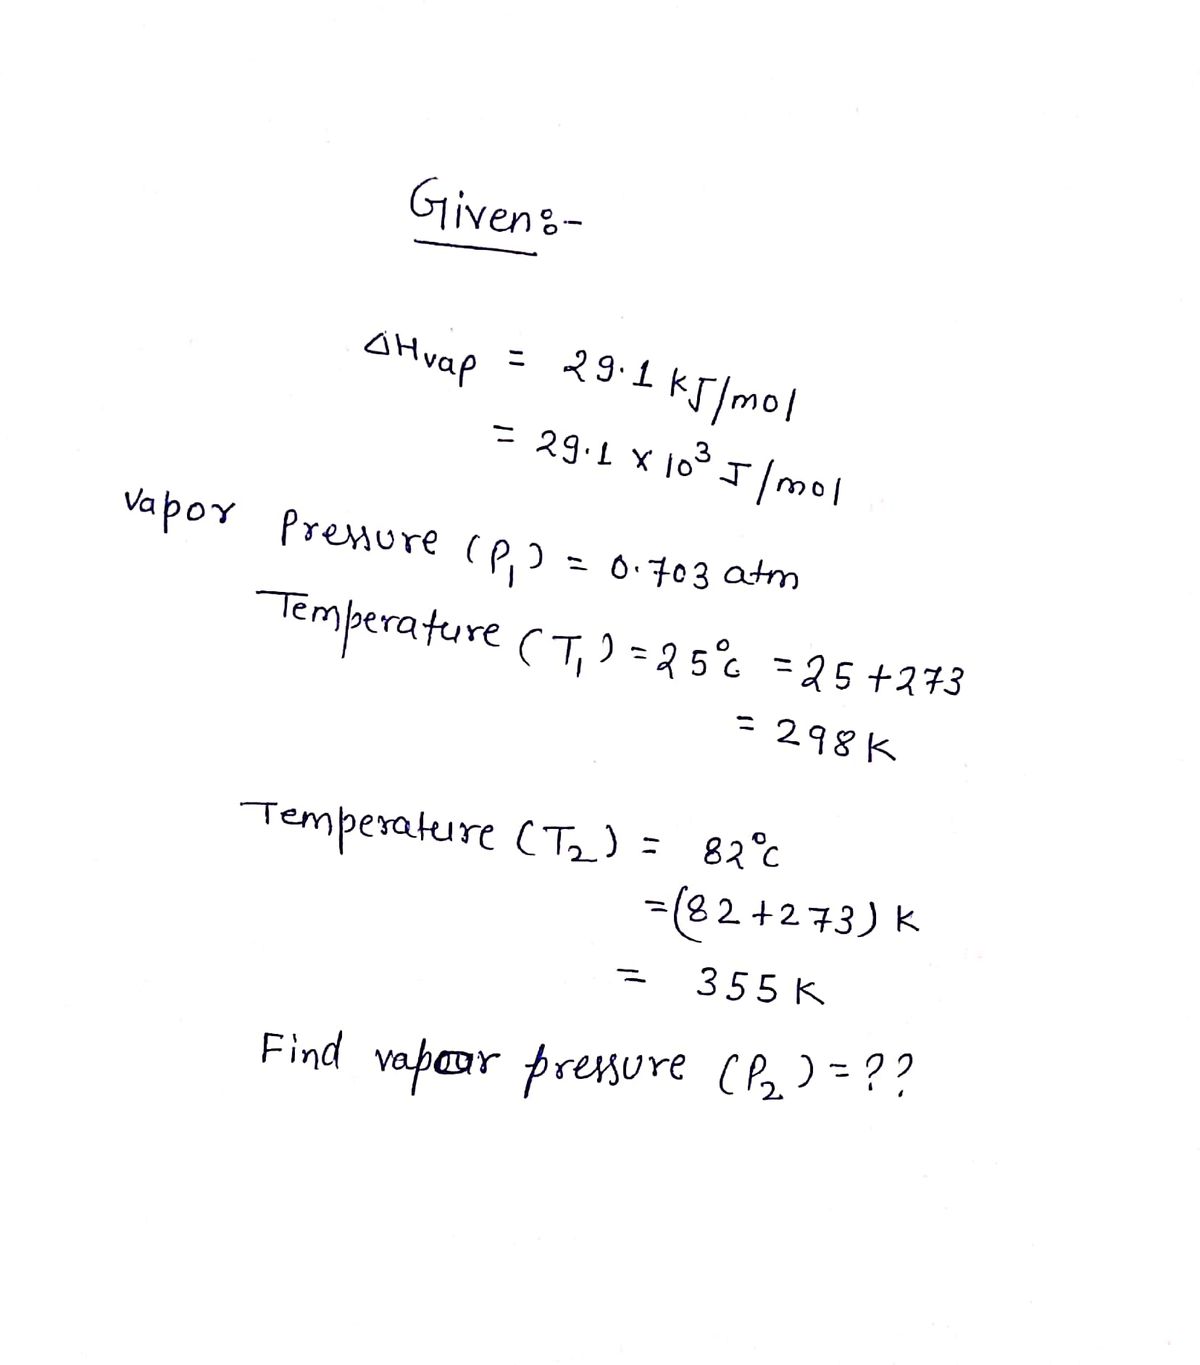 Given:-
ΔHvap = 29.1 kJ/mol
= 29.1 x 10³ J/mol
vapor Pressure (P₁) = 0.703 atm
Temperature (T₁) = 25°C = 25+273
= 298K
Temperature (T₂) = 82°C
=(82+273) K
= 355 K
Find vapour pressure (P₂) = ??